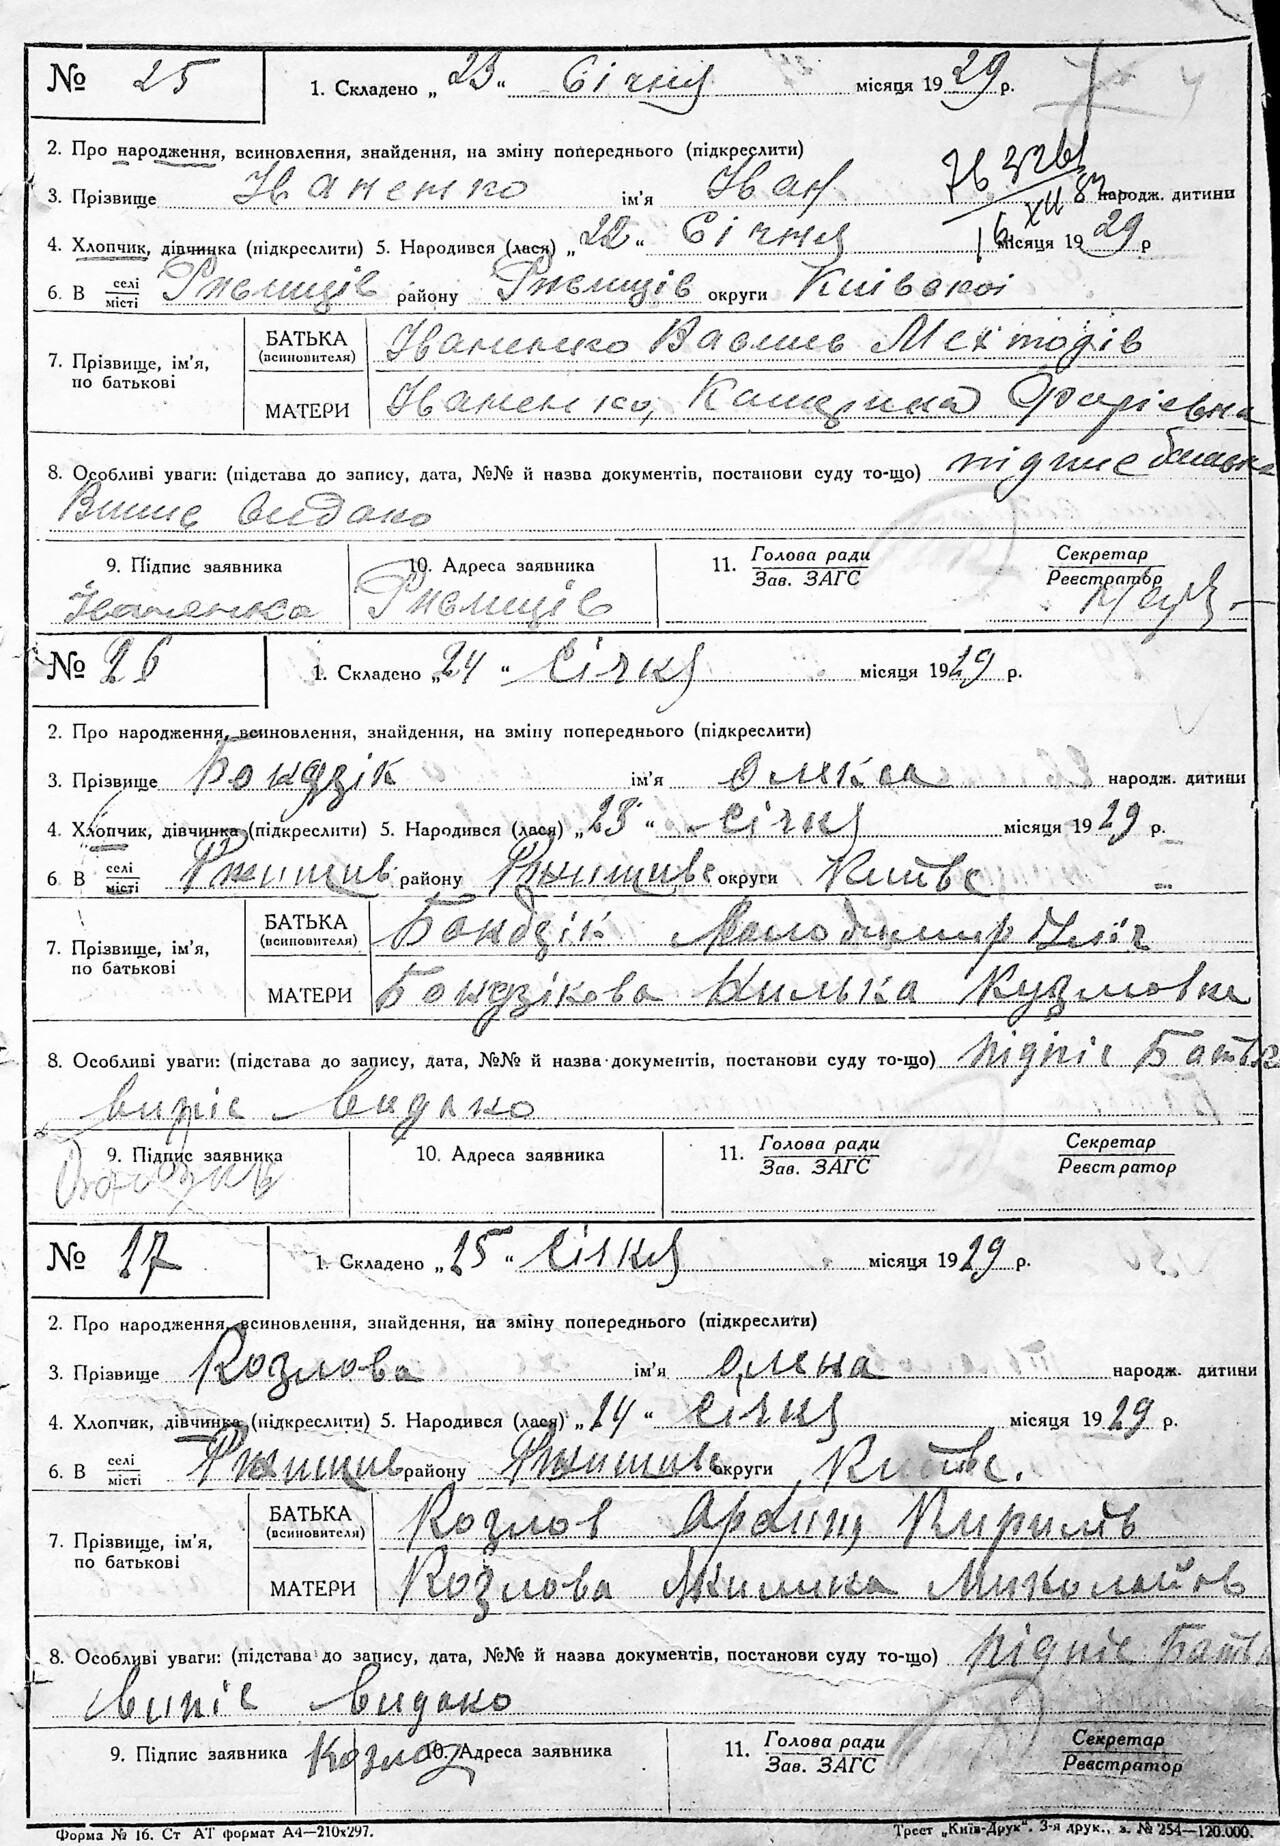 № 25 1. Складено „23“ Січня місяця 1929 р.
2. Про народження, всиновлення, знайдення, на зміну попереднього (підкреслити)
3. Прізвище Іваненко ім'я Іван народж. дитини
4. Хлопчик, дівчинка (підкреслити) 5. Народився (лася) „22“ Січня місяця 1929 р
6. В селі/місті Ржищів району Ржищів округи Київскої
7. Прізвище, ім'я, по батькові
БАТЬКА (всиновителя) Іваненко Василь Методів
МАТЕРИ Іваненко, Катерина
8. Особливі уваги: (підстава до запису, дата, №№ й назва документів, постанови суду то-що) підпис батька
Випис видано
9. Підпис заявника 10. Адреса заявника 11. Голова ради/Зав. ЗАГС Секретар/Реєстратор
Іваненко Ржищів
№ 26 1. Складено „24“ Січня місяця 1929 р.
2. Про народження, всиновлення, знайдення, на зміну попереднього (підкреслити)
3. Прізвище Бондзік ім'я народж. дитини
4. Хлопчик, дівчинка (підкреслити) 5. Народився (лася) „23“ Січня місяця 1929 р.
6 В селі/місті Ржищив району Ржищивс округи Київс
7. Прізвище, ім'я, по батькові
БАТЬКА (всиновителя) Бондзік Володимир Ілліч
МАТЕРИ Бондзікова Кузмовна
8. Особливі уваги: (підстава до запису, дата, №№ й назва документів, постанови суду то-що) підпіс Батька
випіс видано
9. Підпис заявника 10. Адреса заявника 11. Голова ради/Зав. ЗАГС Секретар/Реєстратор
№ 27 1. Складено „25“ Січня місяця 1929 р.
2. Про народження, всиновлення, знайдення, на зміну попереднього (підкреслити)
3. Прізвище Козлова ім'я Олена народж. дитини
4. Хлопчик, дівчинка (підкреслити) 5. Народився (лася) „24“ Січня місяця 1929 р.
6. В селі/місті Ржищив району Ржищивс округи Київс.
7. Прізвище, ім'я, по батькові
БАТЬКА (всиновителя) Козлов Архип Кирилів
МАТЕРИ Козлова Миколайов
8. Особливі уваги: (підстава до запису, дата, №№ й назва документів, постанови суду то-що) підпіс Батька
випіс видано
9. Підпис заявника Козлов 10. Адреса заявника 11. Голова ради/Зав. ЗАГС Секретар/Реєстратор
Форма № 16. Ст АТ формат А4—210х297. Трест „Київ-Друк“. 3-я друк., з. № 254—120.000.